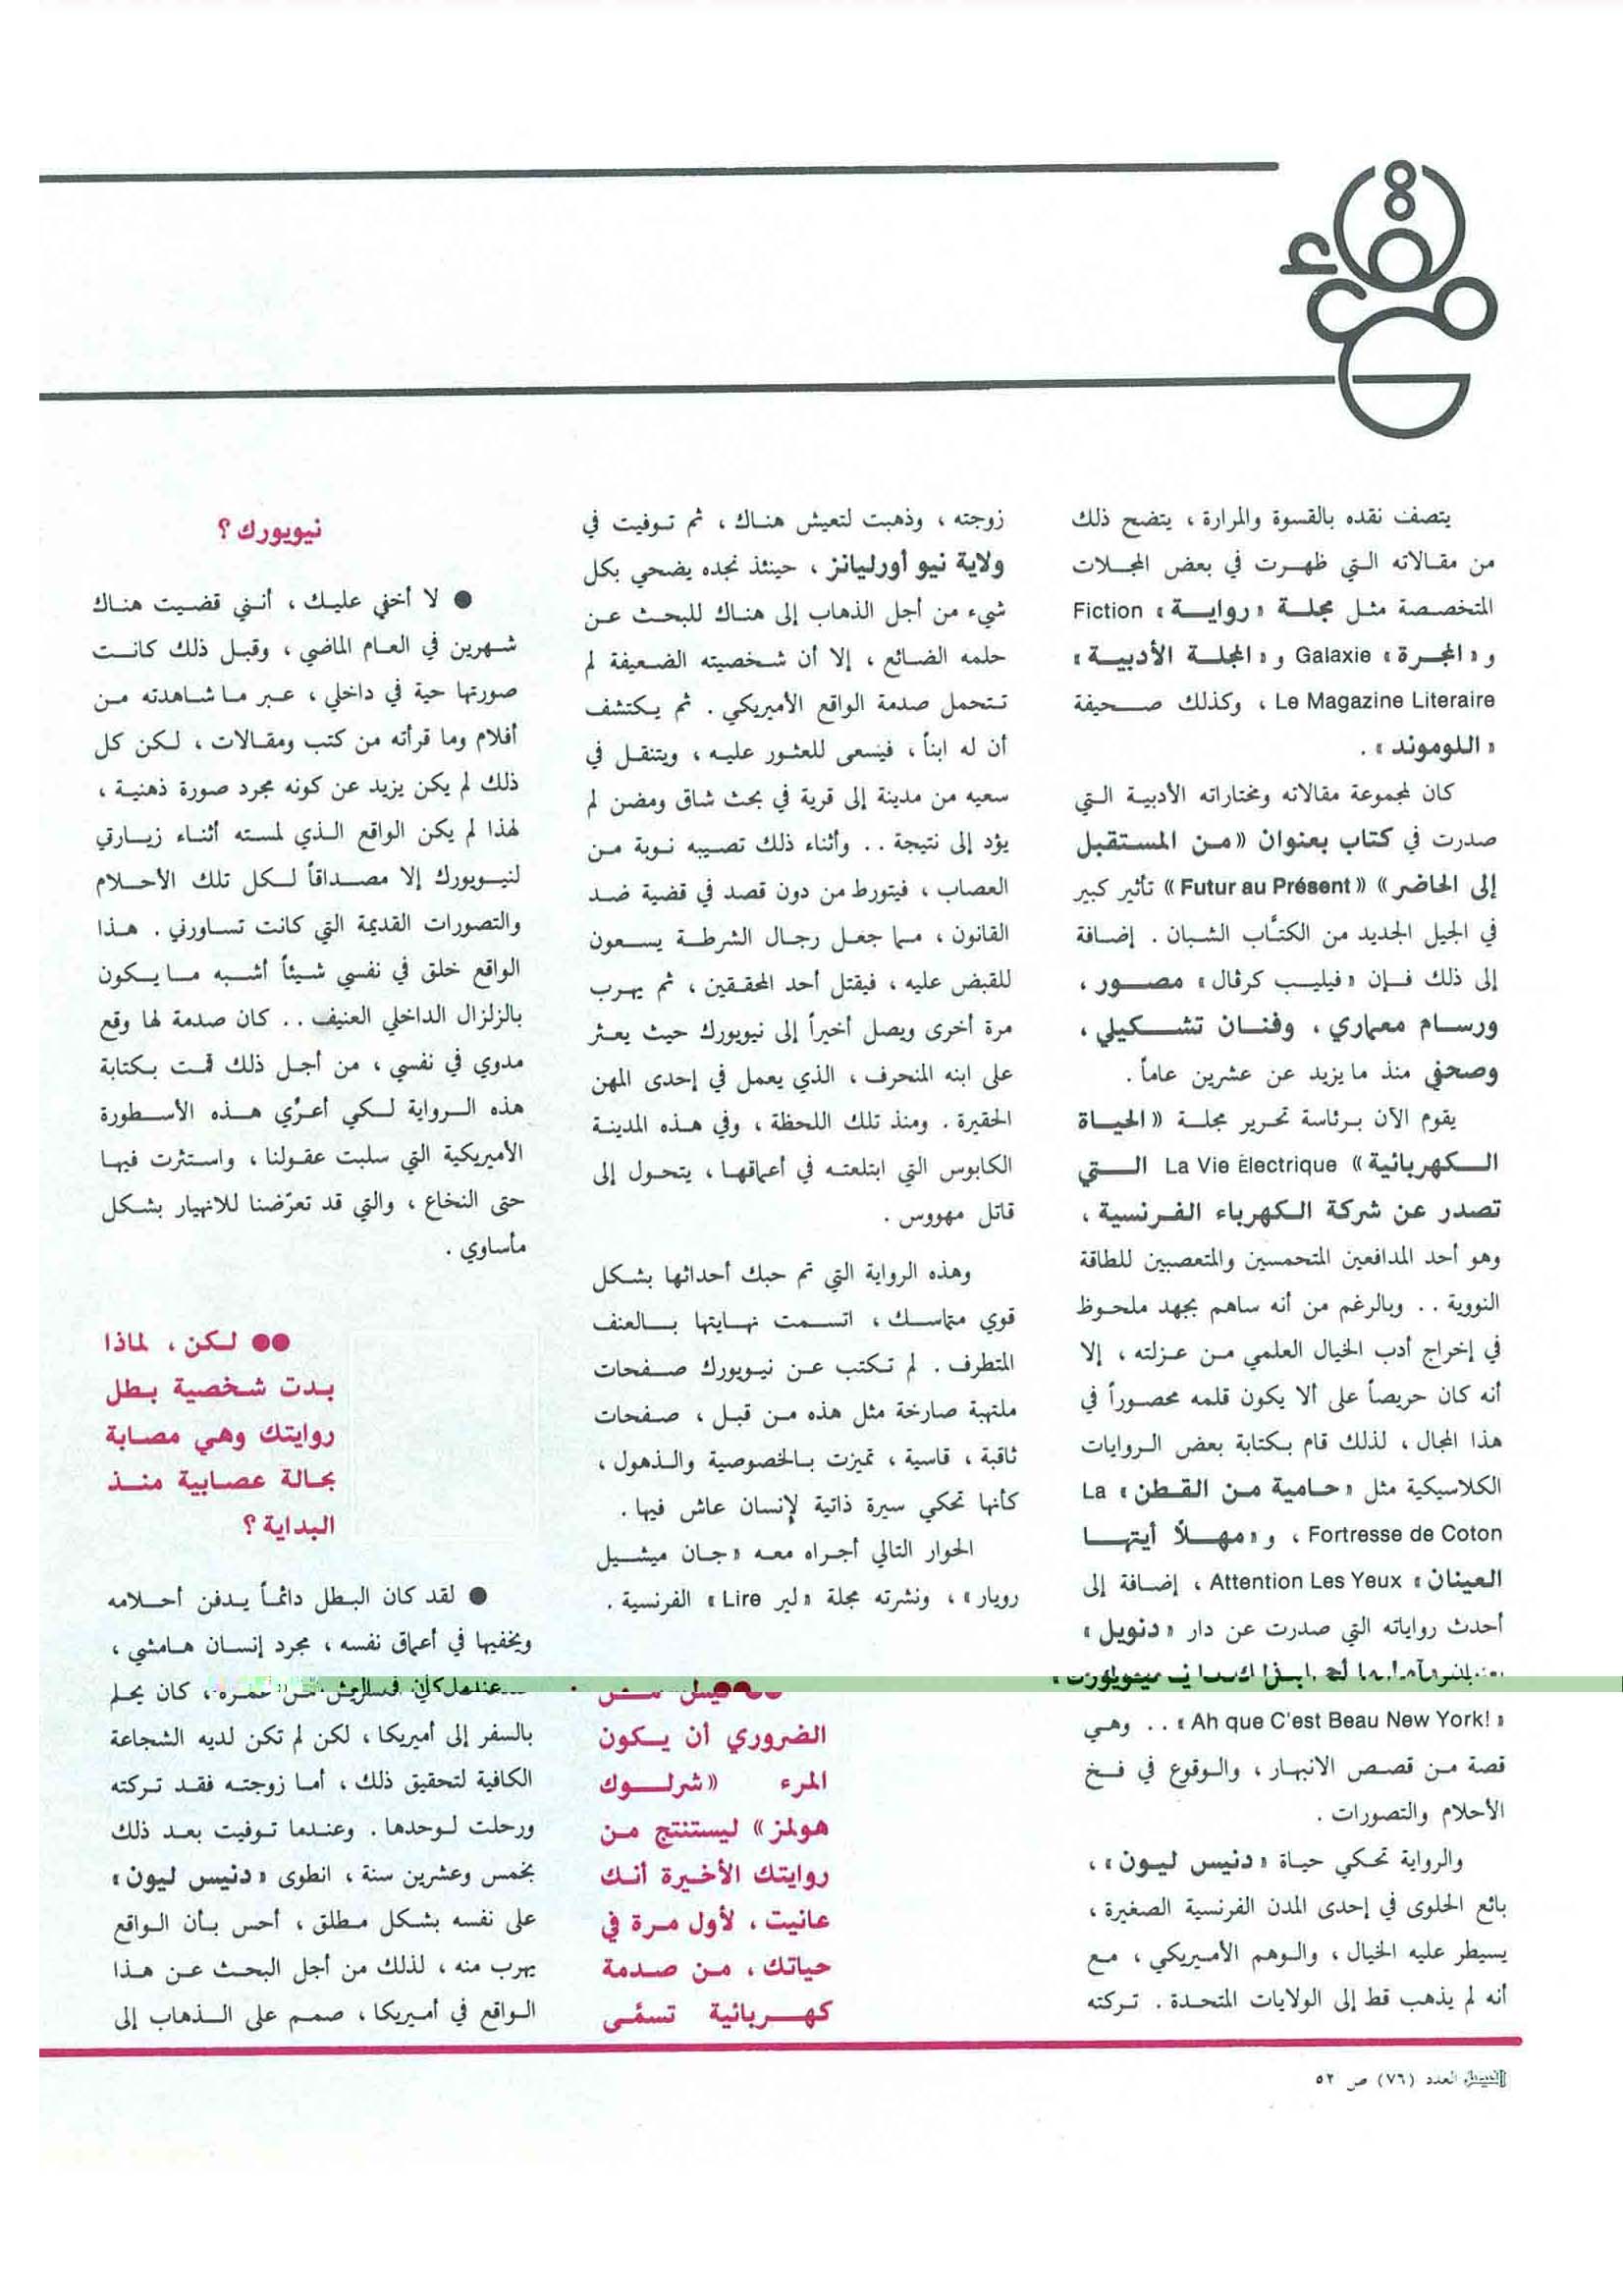 يتصف نقده بالقسوة والمرارة ، يتضح ذلك
من مقالاته التي ظهرت في بعض المجلات
المتخصصة مثل مجلة « رواية » Fiction
و « المجرة » Galaxie و « المجلة الأدبية »
Le Magazine Literaire ، وكذلك صحيفة
« اللوموند » .
كان لمجموعة مقالاته ومختاراته الأدبية التي
صدرت في كتاب بعنوان « من المستقبل
إلى الحاضر » « Futur au Présent » تأثير كبير
في الجيل الجديد من الكتّاب الشبان . إضافة
إلى ذلك فإن « فيليب كرڤال » مصور ،
ورسام معماري ، وفنان تشكيلي ،
وصحفي منذ ما يزيد عن عشرين عاماً .
يقوم الآن برئاسة تحرير مجلة « الحياة
الكهربائية » La Vie Électrique التي
تصدر عن شركة الكهرباء الفرنسية ،
وهو أحد المدافعين المتحمسين والمتعصبين للطاقة
النووية .. وبالرغم من أنه ساهم بجهد ملحوظ
في إخراج أدب الخيال العلمي من عزلته ، إلا
أنه كان حريصاً على ألا يكون قلمه محصوراً في
هذا المجال ، لذلك قام بكتابة بعض الروايات
الكلاسيكية مثل « حامية من القطن » La
Fortresse de Coton ، و « مهلاً أيتها
العينان » Attention Les Yeux ، إضافة إلى
أحدث رواياته التي صدرت عن دار « دنويل »
« Ah que C'est Beau New York! » .. وهي
قصة من قصص الانبهار ، والوقوع في فخ
الأحلام والتصورات .
والرواية تحكي حياة « دنيس ليون » ،
بائع الحلوى في إحدى المدن الفرنسية الصغيرة ،
يسيطر عليه الخيال ، والوهم الأميريكي ، مع
أنه لم يذهب قط إلى الولايات المتحدة . تركته
زوجته ، وذهبت لتعيش هناك ، ثم توفيت في
ولاية نيو أورليانز ، حينئذ نجده يضحي بكل
شيء من أجل الذهاب إلى هناك للبحث عن
حلمه الضائع ، إلا أن شخصيته الضعيفة لم
تتحمل صدمة الواقع الأميريكي . ثم يكتشف
أن له ابناً ، فيسعى للعثور عليه ، ويتنقل في
سعيه من مدينة إلى قرية في بحث شاق ومضن لم
يؤد إلى نتيجة .. وأثناء ذلك تصيبه نوبة من
العصاب ، فيتورط من دون قصد في قضية ضد
القانون ، مما جعل رجال الشرطة يسعون
للقبض عليه ، فيقتل أحد المحققين ، ثم يهرب
مرة أخرى ويصل أخيراً إلى نيويورك حيث يعثر
على ابنه المنحرف ، الذي يعمل في إحدى المهن
الحقيرة . ومنذ تلك اللحظة ، وفي هذه المدينة
الكابوس التي ابتلعته في أعماقها ، يتحول إلى
قاتل مهووس .
وهذه الرواية التي تم حبك أحداثها بشكل
قوي متماسك ، اتسمت نهايتها بالعنف
المتطرف . لم تكتب عن نيويورك صفحات
ملتهبة صارخة مثل هذه من قبل ، صفحات
ثاقبة ، قاسية ، تميزت بالخصوصية والذهول ،
كأنها تحكي سيرة ذاتية لإنسان عاش فيها .
الحوار التالي أجراه معه « جان ميشيل
رويار » ، ونشرته مجلة « لير Lire » الفرنسية .
الضروري أن يكون
المرء « شرلوك
هولمز » ليستنتج من
روايتك الأخيرة أنك
عانيت ، لأول مرة في
حياتك ، من صدمة
كهربائية تسمَّى
نيويورك ؟
● لا أخفي عليك ، أنني قضيت هناك
شهرين في العام الماضي ، وقبل ذلك كانت
صورتها حية في داخلي ، عبر ما شاهدته من
أفلام وما قرأته من كتب ومقالات ، لكن كل
ذلك لم يكن يزيد عن كونه مجرد صورة ذهنية ،
لهذا لم يكن الواقع الذي لمسته أثناء زيارتي
لنيويورك إلا مصداقاً لكل تلك الأحلام
والتصورات القديمة التي كانت تساورني . هذا
الواقع خلق في نفسي شيئاً أشبه ما يكون
بالزلزال الداخلي العنيف .. كان صدمة لها وقع
مدوي في نفسي ، من أجل ذلك قمت بكتابة
هذه الرواية لكي أعرّي هذه الأسطورة
الأميريكية التي سلبت عقولنا ، واستثرت فيها
حتى النخاع ، والتي قد تعرّضنا للانهيار بشكل
مأساوي .
●● لكن ، لماذا
بدت شخصية بطل
روايتك وهي مصابة
بحالة عصابية منذ
البداية ؟
● لقد كان البطل دائماً يدفن أحلامه
ويخفيها في أعماق نفسه ، مجرد إنسان هامشي ،
عندما كان في العشرين من عمره ، كان يحلم
بالسفر إلى أميريكا ، لكن لم تكن لديه الشجاعة
الكافية لتحقيق ذلك ، أما زوجته فقد تركته
ورحلت لوحدها . وعندما توفيت بعد ذلك
بخمس وعشرين سنة ، انطوى « دنيس ليون »
على نفسه بشكل مطلق ، أحس بأن الواقع
يهرب منه ، لذلك من أجل البحث عن هذا
الواقع في أميريكا ، صمم على الذهاب إلى
الفيصل العدد (٧٦) ص ٥٢